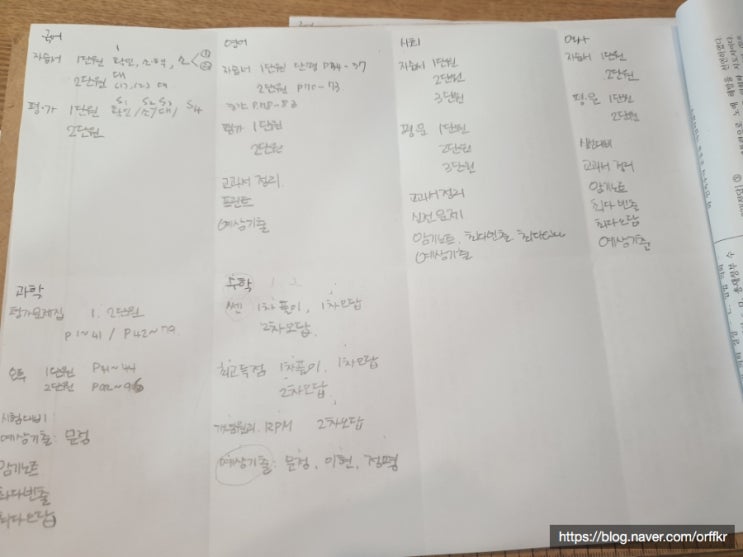 국어
자습서 1단원
2단원
평가 1단원
2단원
영어
자습서 1단원 단평 P34-37
2단원 P70-73
평가 1단원
2단원
교과서 정리
프린트
예상기출
사회
자습서 1단원
2단원
3단원
평문 1단원
2단원
3단원
교과서 정리
실전문제
암기노트, 최다빈출, 최다오답
예상기출
역사
자습서 1단원
2단원
평문 1단원
2단원
시험대비
교과서 정리
암기노트
최다빈출
최다오답
예상기출
과학
평가문제집 1. 2단원
P1~41 / P42~79.
오투 1단원 P41~44
2단원
시험대비
예상기출: 문정
암기노트
최다빈출
최다오답
수학
쎈 1차풀이, 1차오답
2차오답.
최고득점 1차풀이, 1차오답
2차오답.
개념원리 RPM 2차오답
예상기출: 문정, 이현, 정평
https://blog.naver.com/orffkr